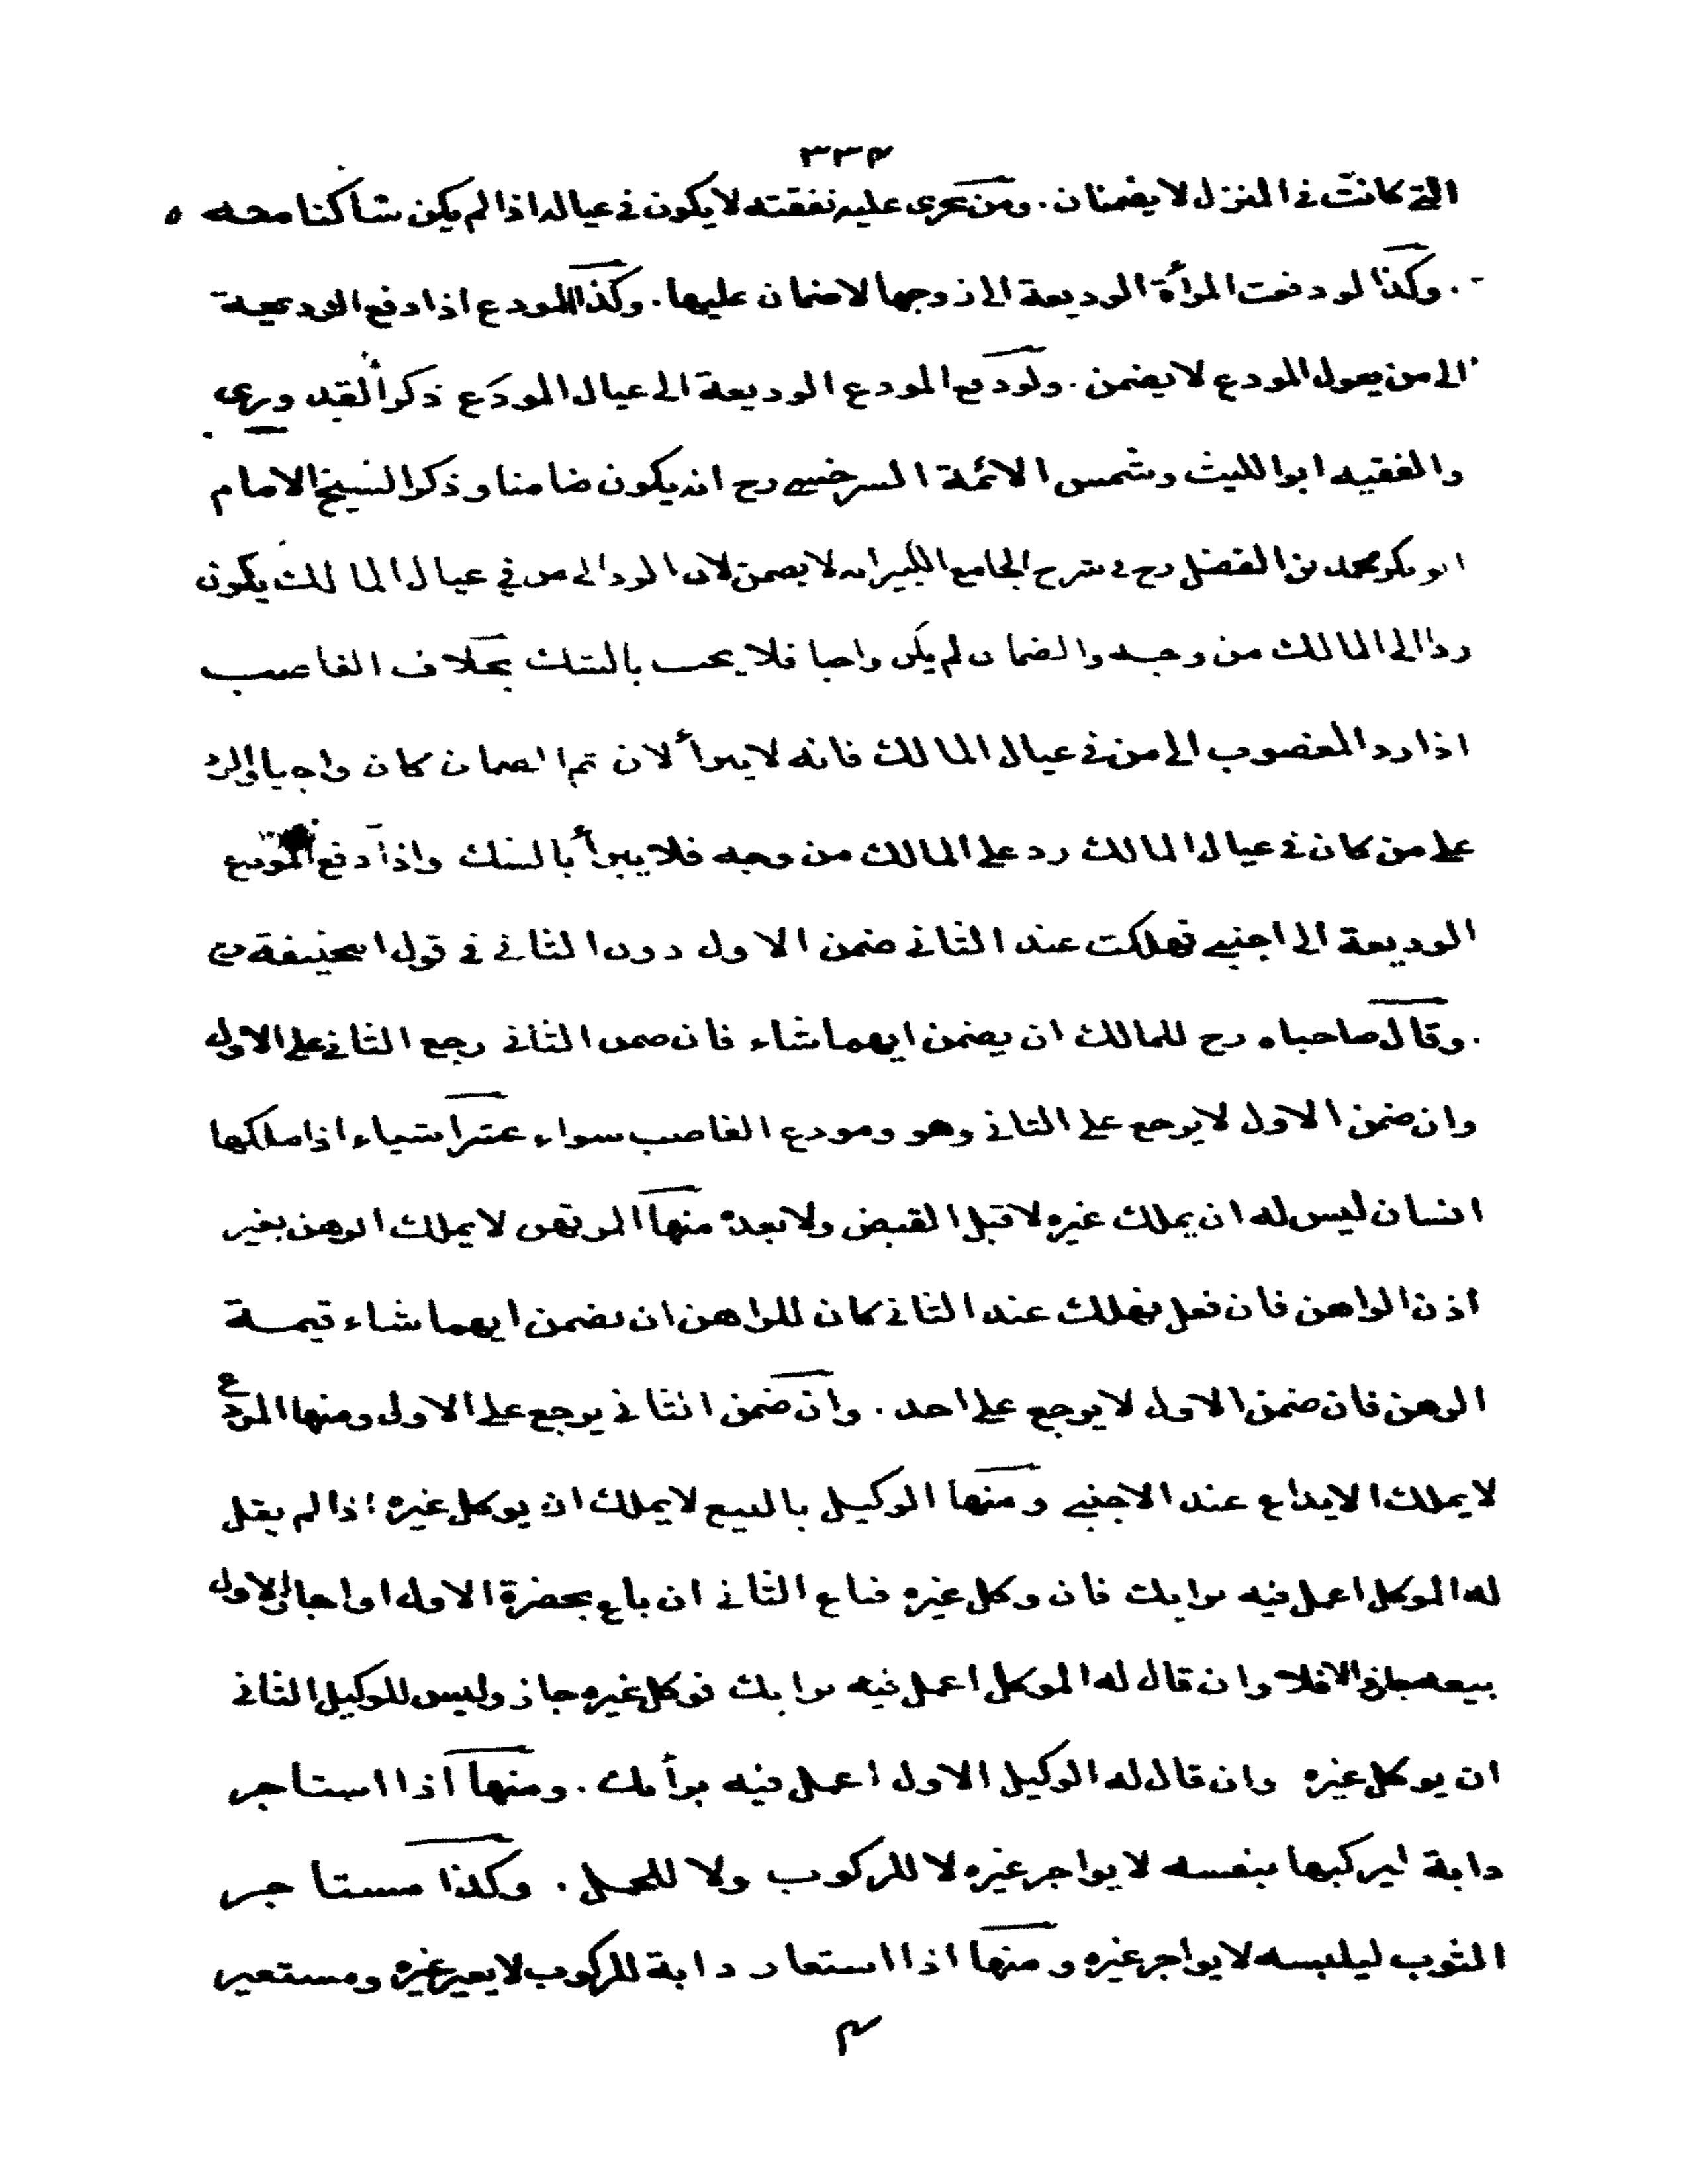 ٣٣٤
التى كانت فى المنزل لا يضمنان . ومن يجرى عليه نفقته لا يكون فى عياله اذا لم يكن ساكنا معه
. وكذا لو دفعت المرأة الوديعة الى زوجها لا ضمان عليها . وكذا المودع اذا دفع الوديعة
الى من يعول المودع لا يضمن . ولو دفع المودع الوديعة الى عيال المودَع ذكر القدورى
والفقيه ابو الليث وشمس الائمة السرخسى رح انه يكون ضامنا وذكر الشيخ الامام
ابو بكر محمد بن الفضل رح فى شرح الجامع الكبير انه لا يضمن لان الرد الى من فى عيال المالك يكون
ردا الى المالك من وجه والضمان لم يكن واجبا فلا يجب بالشك بخلاف الغاصب
اذا رد المغصوب الى من فى عيال المالك فانه لا يبرأ لان ثم الضمان كان واجبا والرد
على من كان فى عيال المالك رد على المالك من وجه فلا يبرأ بالشك واذا دفع المودع
الوديعة الى اجنبى فهلكت عند الثانى ضمن الاول دون الثانى فى قول ابى حنيفة رح
. وقال صاحباه رح للمالك ان يضمن ايهما شاء فان ضمن الثانى رجع الثانى على الاول
وان ضمن الاول لا يرجع على الثانى وهو ومودع الغاصب سواء عشر اشياء اذا ملكها
انسان ليس له ان يملك غيره لا قبل القبض ولا بعده منها المرتهن لا يملك الرهن بغير
اذن الراهن فان فعل فهلك عند الثانى كان للراهن ان يضمن ايهما شاء قيمة
الرهن فان ضمن الاول لا يرجع على احد . وان ضمن الثانى يرجع على الاول ومنها المودع
لا يملك الايداع عند الاجنبى ومنها الوكيل بالبيع لا يملك ان يوكل غيره اذا لم يقل
له الموكل اعمل فيه برايك فان وكل غيره فباع الثانى ان باع بحضرة الاول او اجاز الاول
بيعه جاز والا فلا وان قال له الموكل اعمل فيه برايك فوكل غيره جاز وليس للوكيل الثانى
ان يوكل غيره وان قال له الوكيل الاول اعمل فيه برأيك . ومنها اذا استاجر
دابة ليركبها بنفسه لا يواجر غيره لا للركوب ولا للحمل . وكذا مستاجر
الثوب ليلبسه لا يواجر غيره ومنها اذا استعار دابة للركوب لا يعير غيره ومستعير